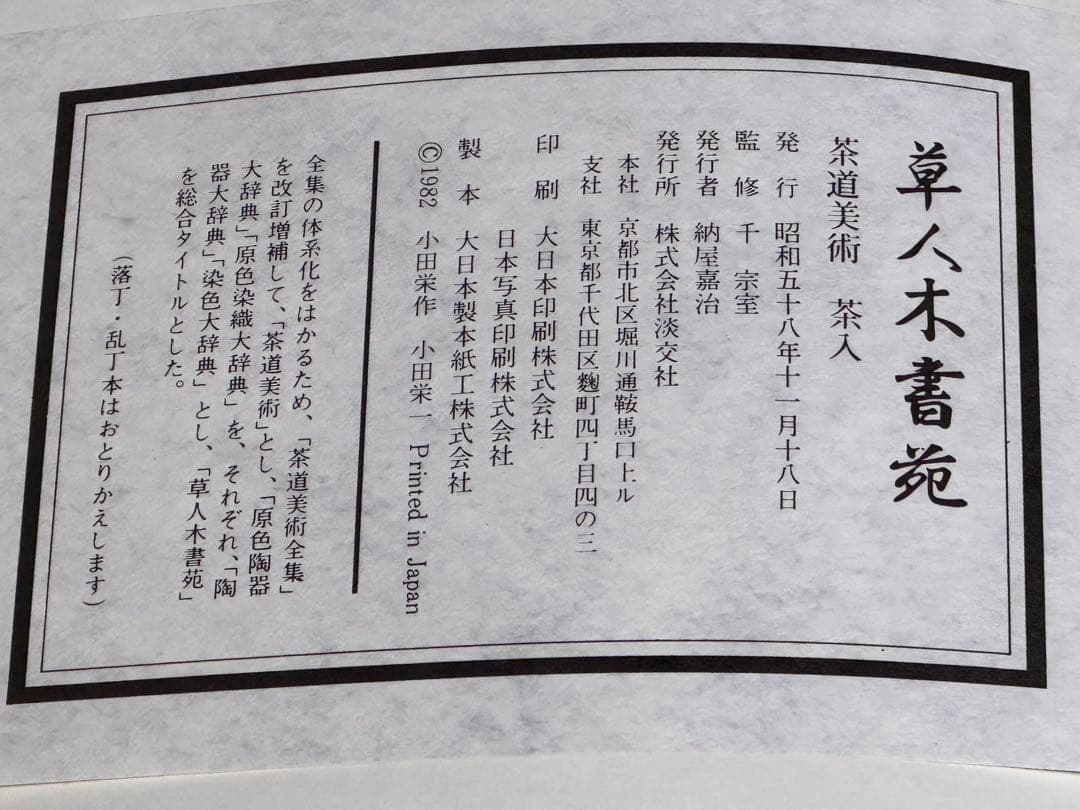 草人木書苑
茶道美術　茶入
発　行　昭和五十八年十一月十八日
監　修　千　宗室
発行者　納屋嘉治
発行所　株式会社淡交社
本社　京都市北区堀川通鞍馬口上ル
支社　東京都千代田区麴町四丁目四の三
印　刷　大日本印刷株式会社
日本写真印刷株式会社
製　本　大日本製本紙工株式会社
©1982　小田栄作　小田栄一　Printed in Japan
全集の体系化をはかるため、「茶道美術全集」
を改訂増補して、「茶道美術」とし、「原色陶器
大辞典」「原色染織大辞典」を、それぞれ、「陶
器大辞典」「染色大辞典」とし、「草人木書苑」
を総合タイトルとした。
（落丁・乱丁本はおとりかえします）